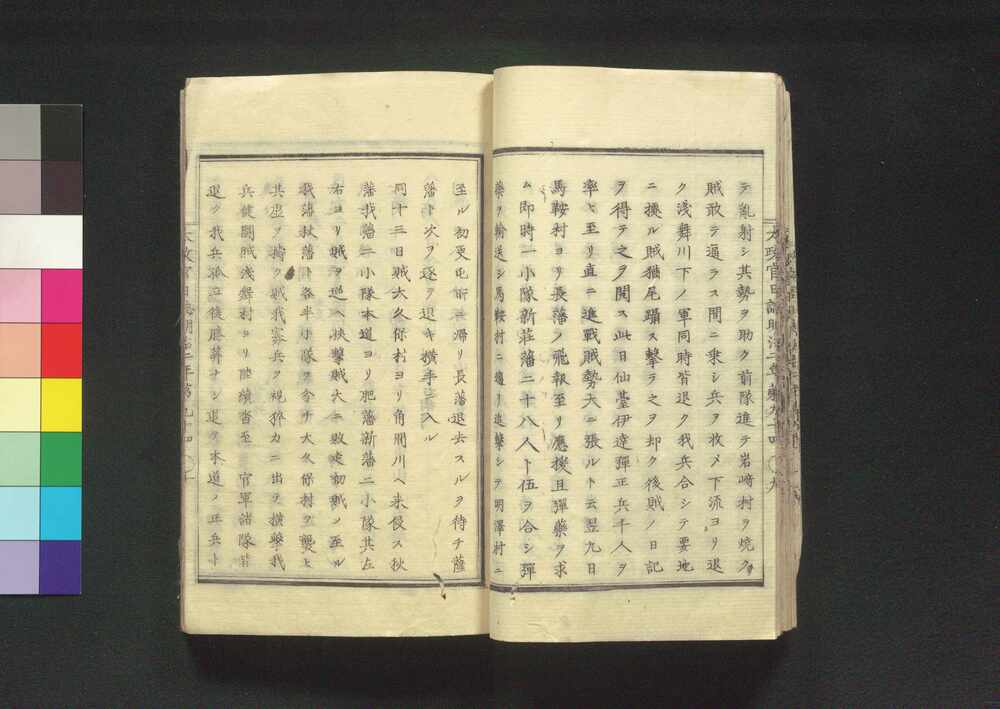 テ亂射シ其勢ヲ助ク前隊進テ岩﨑村ヲ燒ク
賊敢テ逼ラス間ニ乗シ兵ヲ收メ下流ヨリ退
ク淺舞川下ノ軍同時皆退ク我兵合シテ要地
ニ據ル賊猶尾躡ス擊テ之ヲ却ク後賊ノ日記
ヲ得テ之ヲ閲ス此日仙臺伊達彈正兵千人ヲ
率ヒ至リ直ニ進戰賊勢大ニ張ルト云翌九日
馬鞍村ヨリ長藩ノ飛報至リ應援且彈藥ヲ求
ム即時一小隊新莊藩二十八人ト伍ヲ合シ彈
藥ヲ輸送シ馬鞍村ニ進擊シテ明澤村ニ
太政官日誌明治二年第九十四 九
至ル初更屯所ニ帰リ長藩退去スルヲ待チ薩
藩ト次ヲ逐ヲ退キ橫手ニ入ル
同十三日賊大久保村ヨリ角間川ヘ来侵ス秋
藩我藩二小隊本道ヨリ肥藩新藩二小隊其左
右ヨリ賊ヲ巡ヘ挾擊賊大ニ敗走初賊ノ至ル
我藩秋藩ト各半小隊ヲ分チ大久保村ヲ襲ヒ
其虛ヲ擣ク賊我寡兵ヲ視猝カニ出テ橫擊我
兵健鬬賊淺舞村ヨリ陸續沓至 官軍諸隊皆
退ク我兵孤立後勝算ナシ退ク本道ノ正兵ト
太政官日誌明治二年第九十四